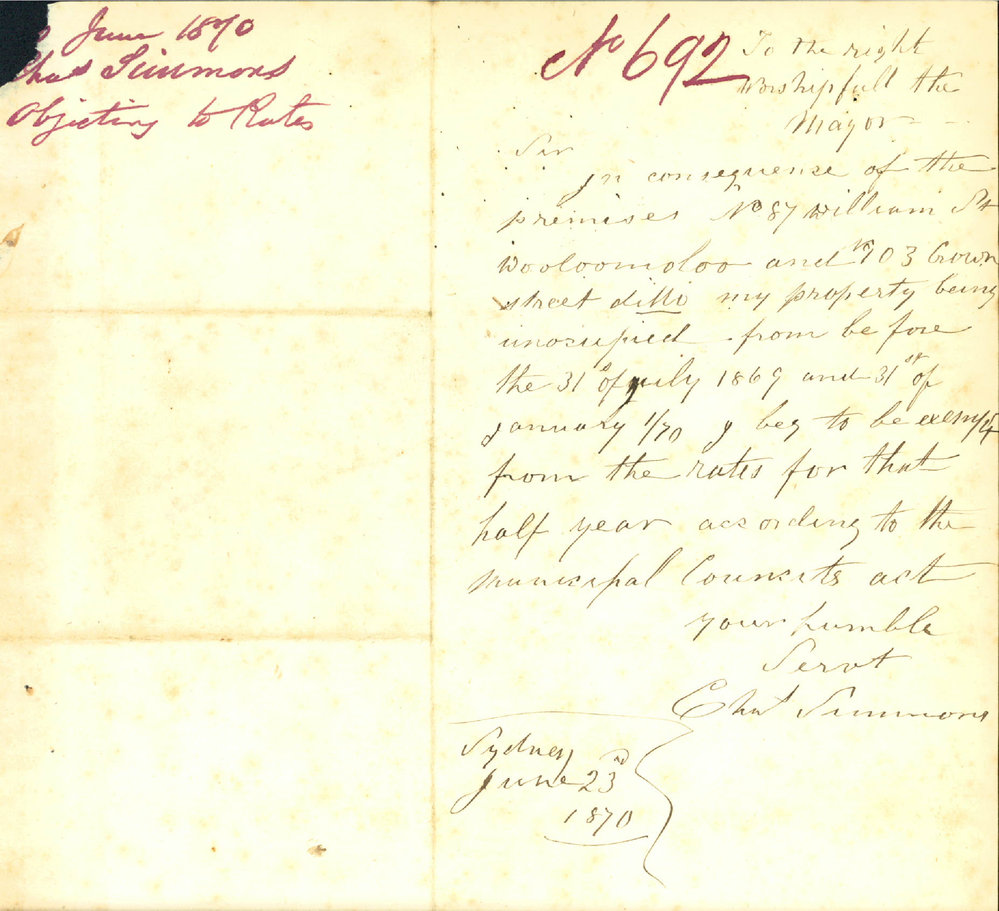 June 1870
Chas Simmons
Objecting to Rates
No 692
To the right
worshipfull the
Mayor
Sir
In consequence of the
premises No 87 William St
Wooloomoloo and No 103 Crown
street ditto my property being
unocupied from before
the 31st of july 1869 and 31st of
january 1/70 I beg to be exempt
from the rates for that
half year according to the
Municipal Councils act
your humble
Servt
Chas Simmons
Sydney
June 23rd
1870